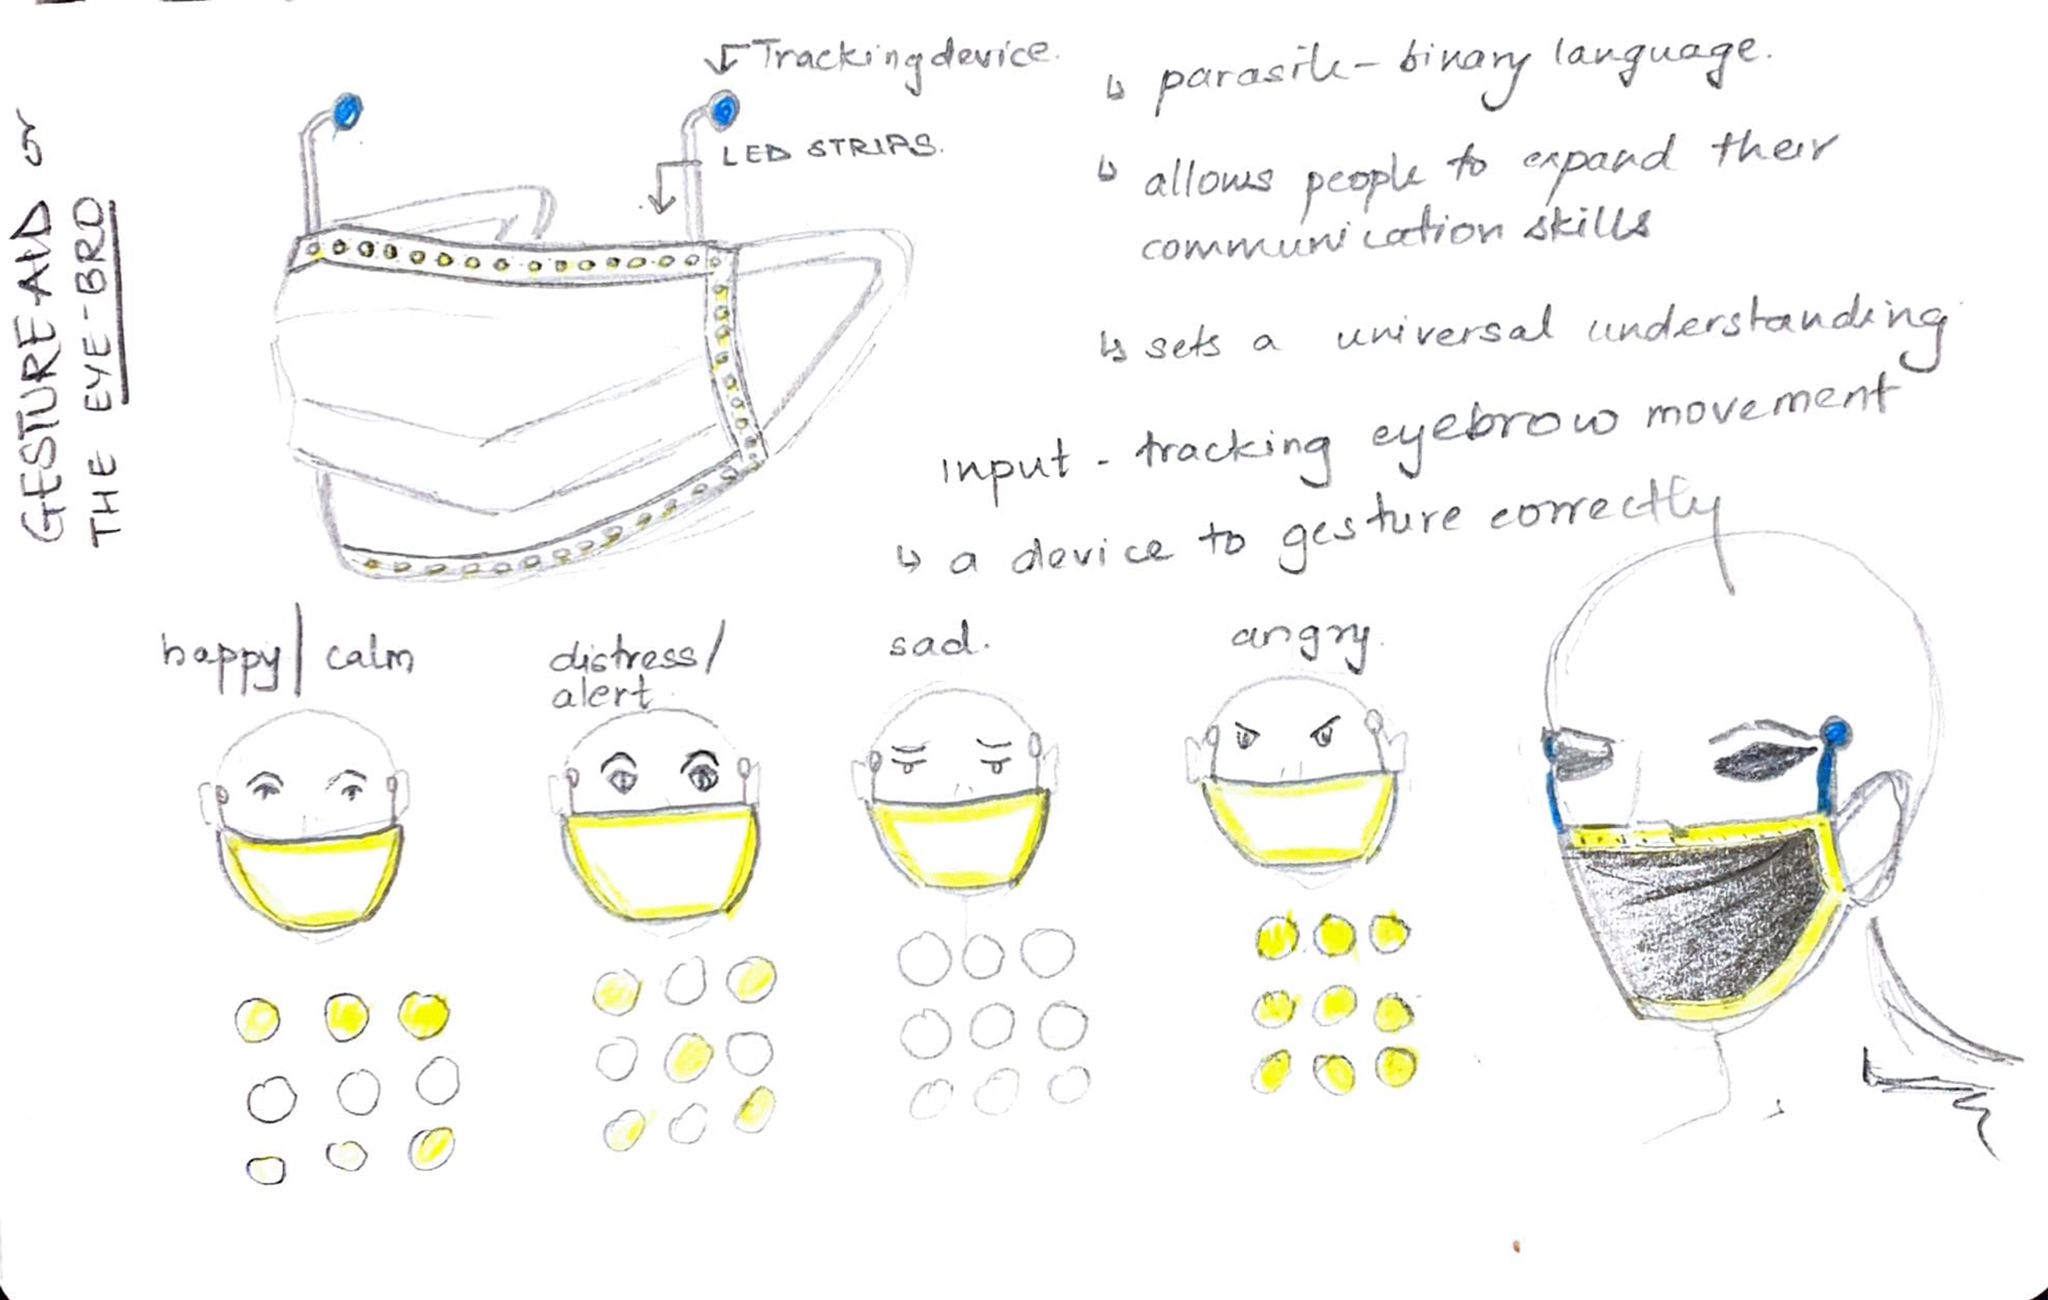 GESTURE AID or
THE EYE-BRO
Tracking device.
LED STRIPS.
parasite - binary language.
allows people to expand their
communication skills
sets a universal understanding
input - tracking eyebrow movement
a device to gesture correctly
happy/calm
distress/
alert
sad.
angry.